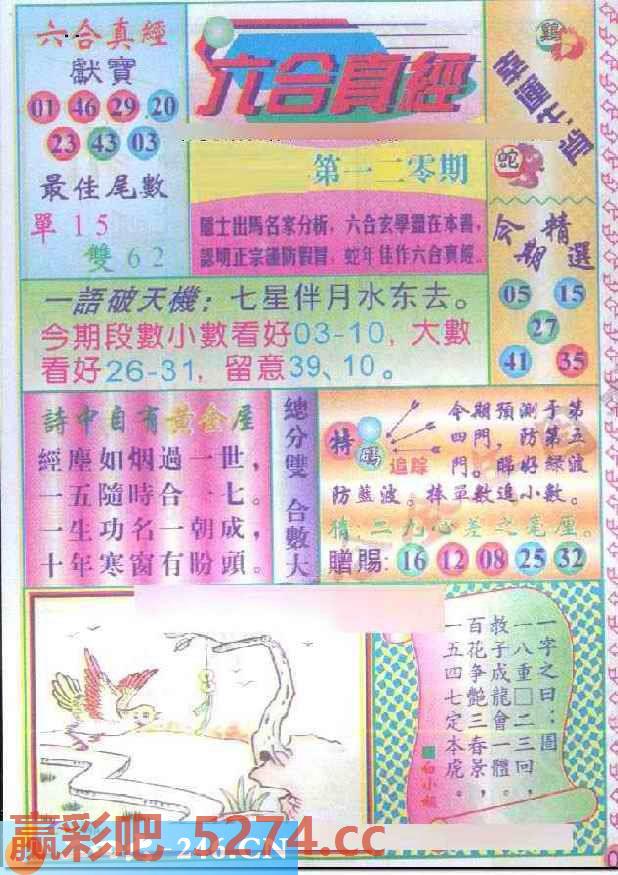 六合真經
獻寶
01 46 29 20
23 43 03
最佳尾數
單 1 5
雙 6 2
六合真經
第一二零期
隱士出馬名家分析，六合玄學盡在本書，
認明正宗謹防假冒，蛇年佳作六合真經。
雞
蛇
今期精選
05 15
27
41 35
一語破天機：七星伴月水东去。
今期段數小數看好03-10，大數
看好26-31，留意39、10。
詩中自有黃金屋
經塵如烟過一世，
一五隨時合一七。
一生功名一朝成，
十年寒窗有盼頭。
總分雙 合數大
特碼
追踪
今期預測于第
四門，防第五
門。睇好綠波
防藍波。捧單數追小數。
猜：二九心差之毫厘。
贈賜：16 12 08 25 32
一字之曰：圖
一八重□二三回，
救子成龍會一體。
百花争艷三春景，
一五四七定本虎。
白小姐
赢彩吧 5274.cc
246.CN